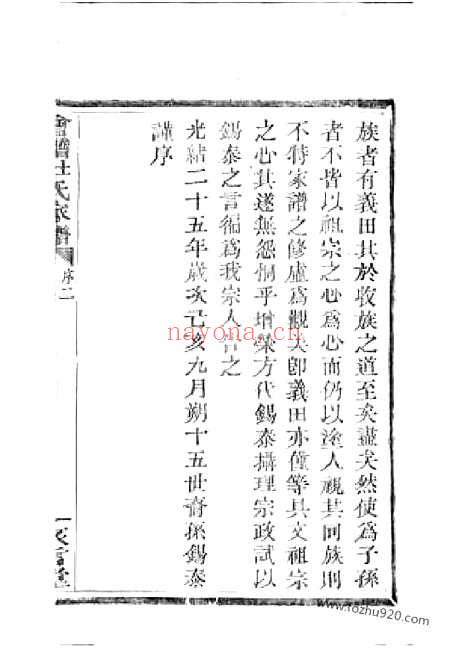 族者有義田其於收族之道至矣盡矣然使爲子孫
者不皆以祖宗之心爲心而仍以塗人視其同族則
不特家譜之修虛爲觀美卽義田亦僅等具文祖宗
之心其遂無怨恫乎增榮方代錫泰攝理宗政試以
錫泰之言徧爲我宗人告之
光緒二十五年歲次己亥九月朔十五世裔孫錫泰
謹序
會稽杜氏家譜
序二
nayona.cn
www.fozhu920.com